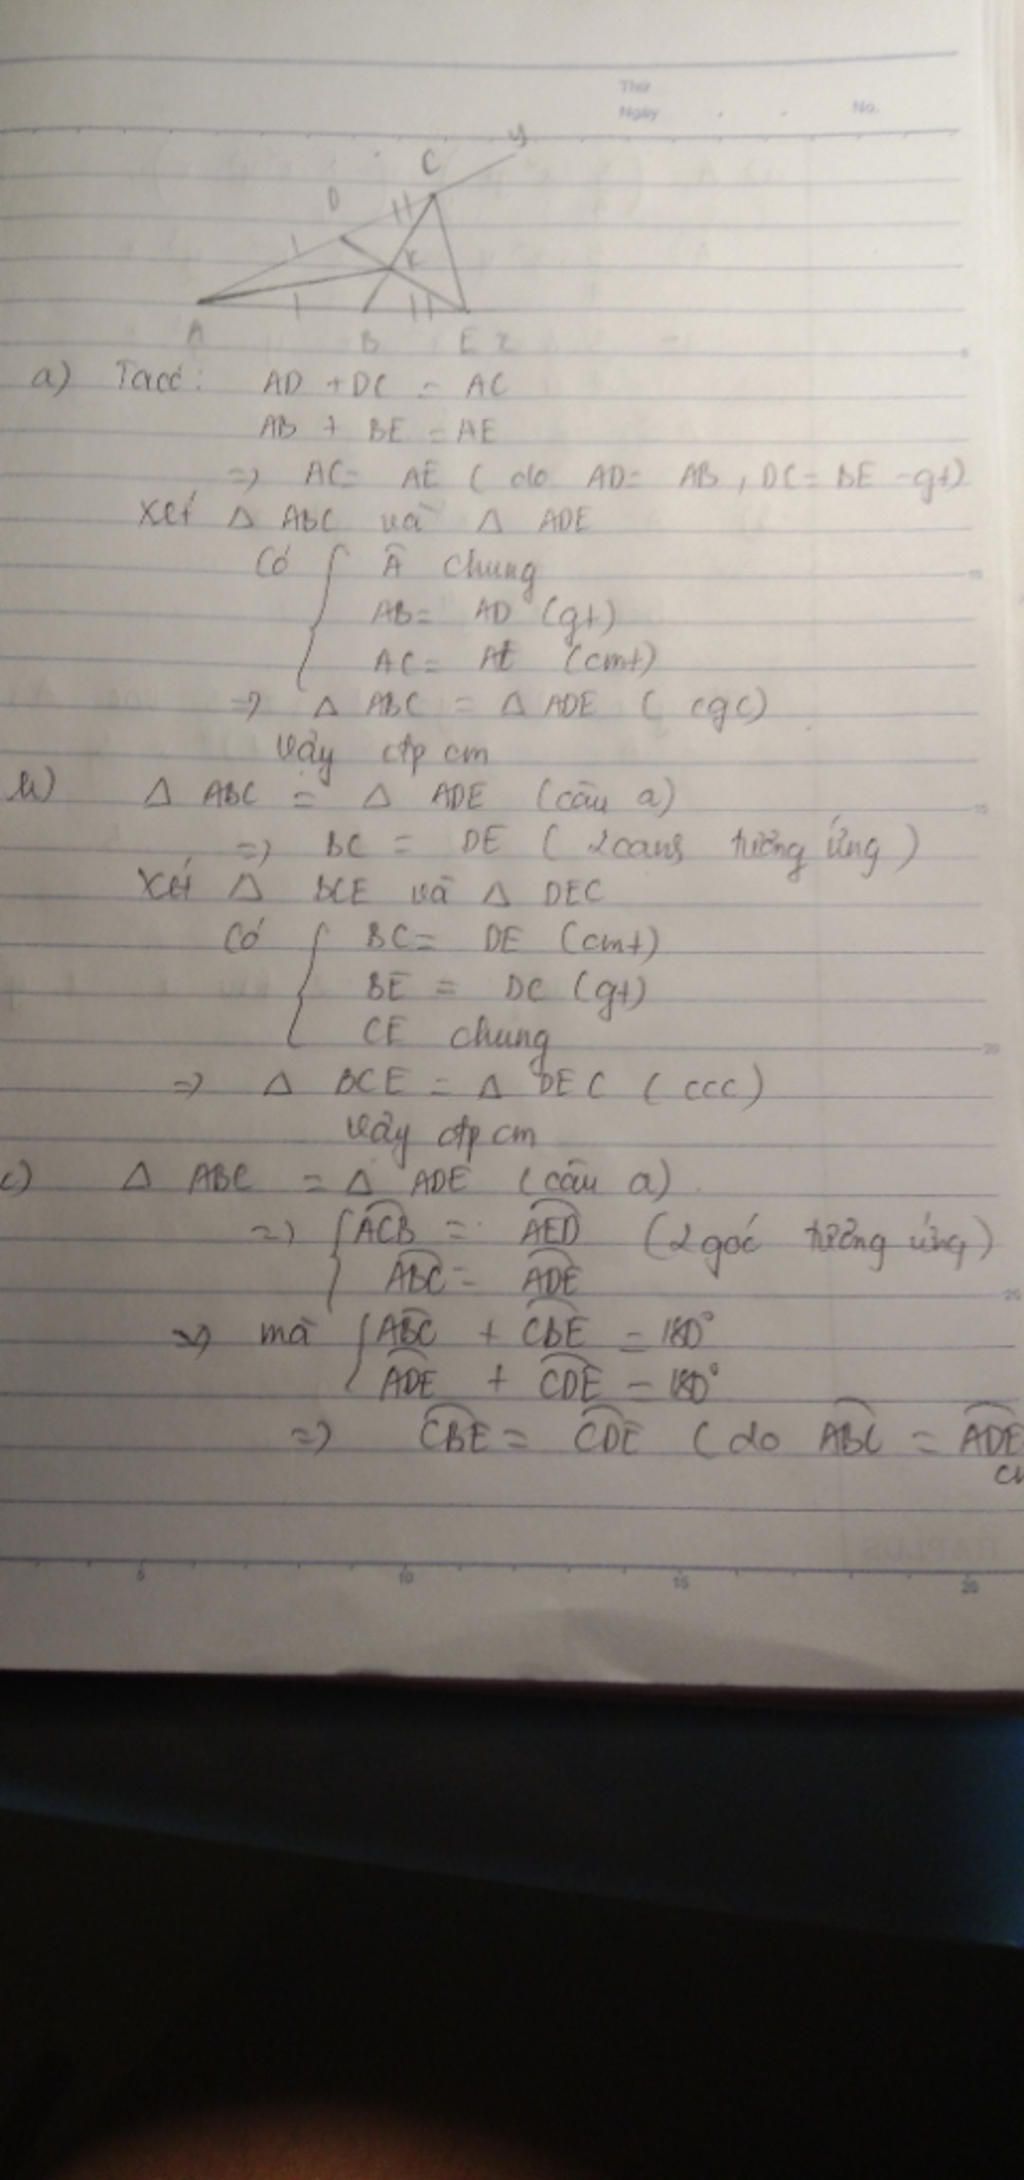 Thứ
Ngày . . No.
y
C
D
K
A B E z
a) Ta có: AD + DC = AC
AB + BE = AE
=> AC = AE ( do AD = AB , DC = BE - gt)
Xét Δ ABC và Δ ADE
Có { Â chung
AB = AD (gt)
AC = AE (cmt)
=> Δ ABC = Δ ADE ( cgc)
Vậy đpcm
b) Δ ABC = Δ ADE (câu a)
=> BC = DE ( 2 cạnh tương ứng )
Xét Δ BCE và Δ DEC
Có { BC = DE (cmt)
BE = DC (gt)
CE chung
=> Δ BCE = Δ DEC ( ccc)
Vậy đpcm
c) Δ ABC = Δ ADE (câu a)
=> { ACB = AED (2 góc tương ứng)
ABC = ADE
=> mà { ABC + CBE = 180°
ADE + CDE = 180°
=> CBE = CDE ( do ABC = ADE
5 10 15 20